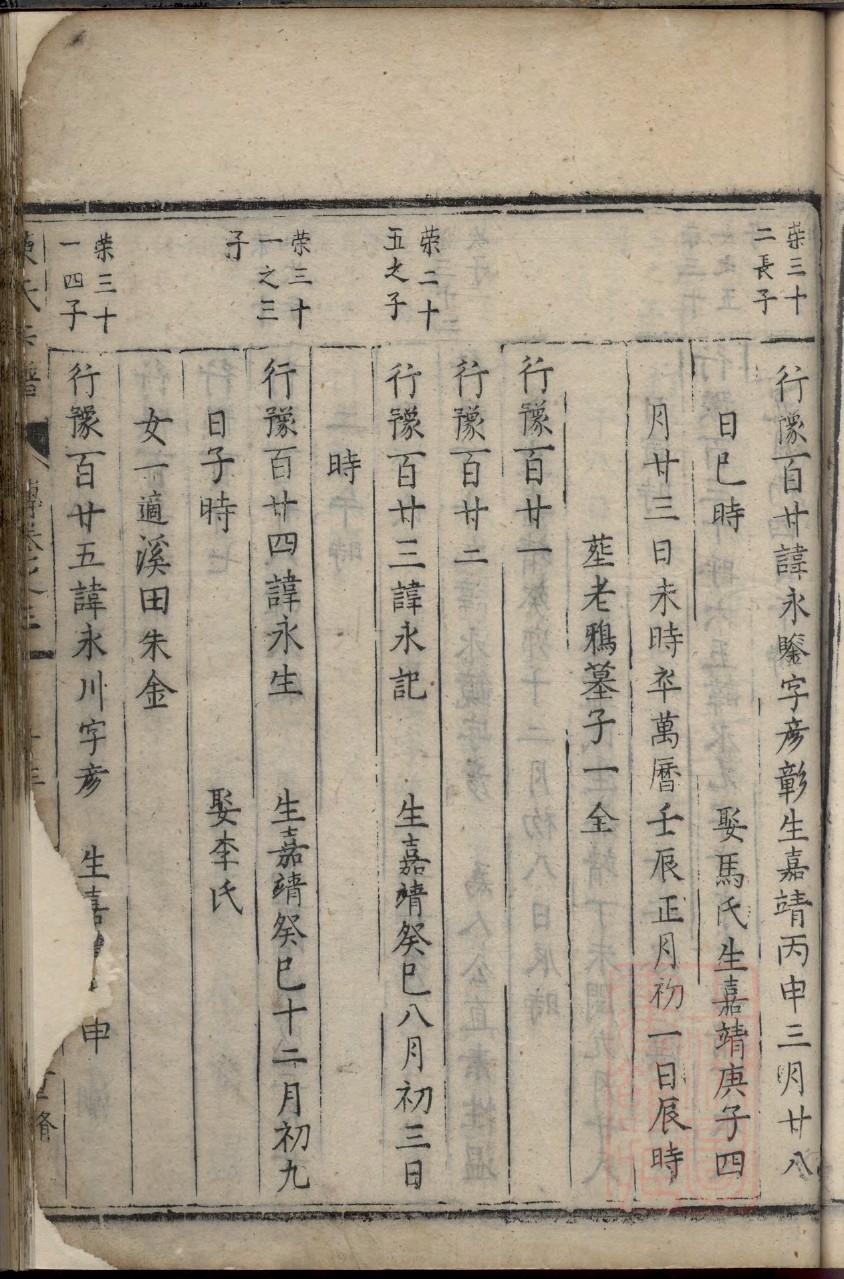 荣三十
二長子
行豫一百廿諱永鑒字彥彰生嘉靖丙申三月廿八
日巳時 娶馬氏生嘉靖庚子四
月廿三日未時卒萬曆壬辰正月初一日辰時
塟老鴉墓子一全
行豫一百廿一
行豫一百廿二
荣二十
五之子
行豫一百廿三諱永記 生嘉靖癸巳八月初三日
時
荣三十
一之三
子
行豫一百廿四諱永生 生嘉靖癸巳十二月初九
日子時 娶李氏
女一適溪田朱金
荣三十
一四子
行豫一百廿五諱永川字彥 生嘉 申